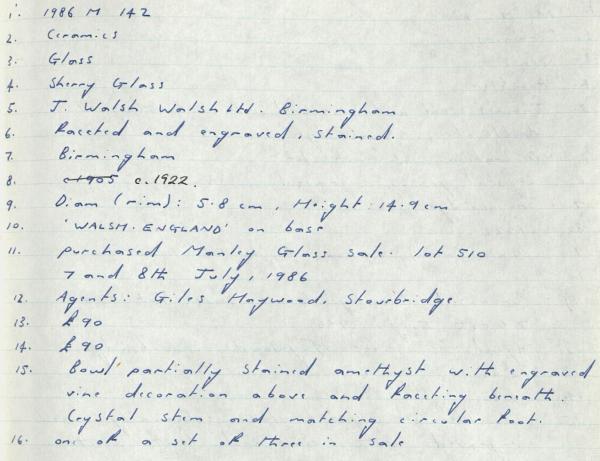 1. 1986 M 142
2. Ceramics
3. Glass
4. Sherry Glass
5. J. Walsh Walsh Ltd. Birmingham
6. Faceted and engraved, stained.
7. Birmingham
8. c1905 c.1922.
9. Diam (rim): 5.8 cm, Height: 14.9 cm
10. 'WALSH. ENGLAND' on base
11. purchased Manley Glass sale. lot 510
7 and 8th July, 1986
12. Agents: Giles Haywood, Stourbridge
13. £90
14. £90
15. Bowl partially stained amethyst with engraved
vine decoration above and faceting beneath.
Crystal stem and matching circular foot.
16. one of a set of three in sale